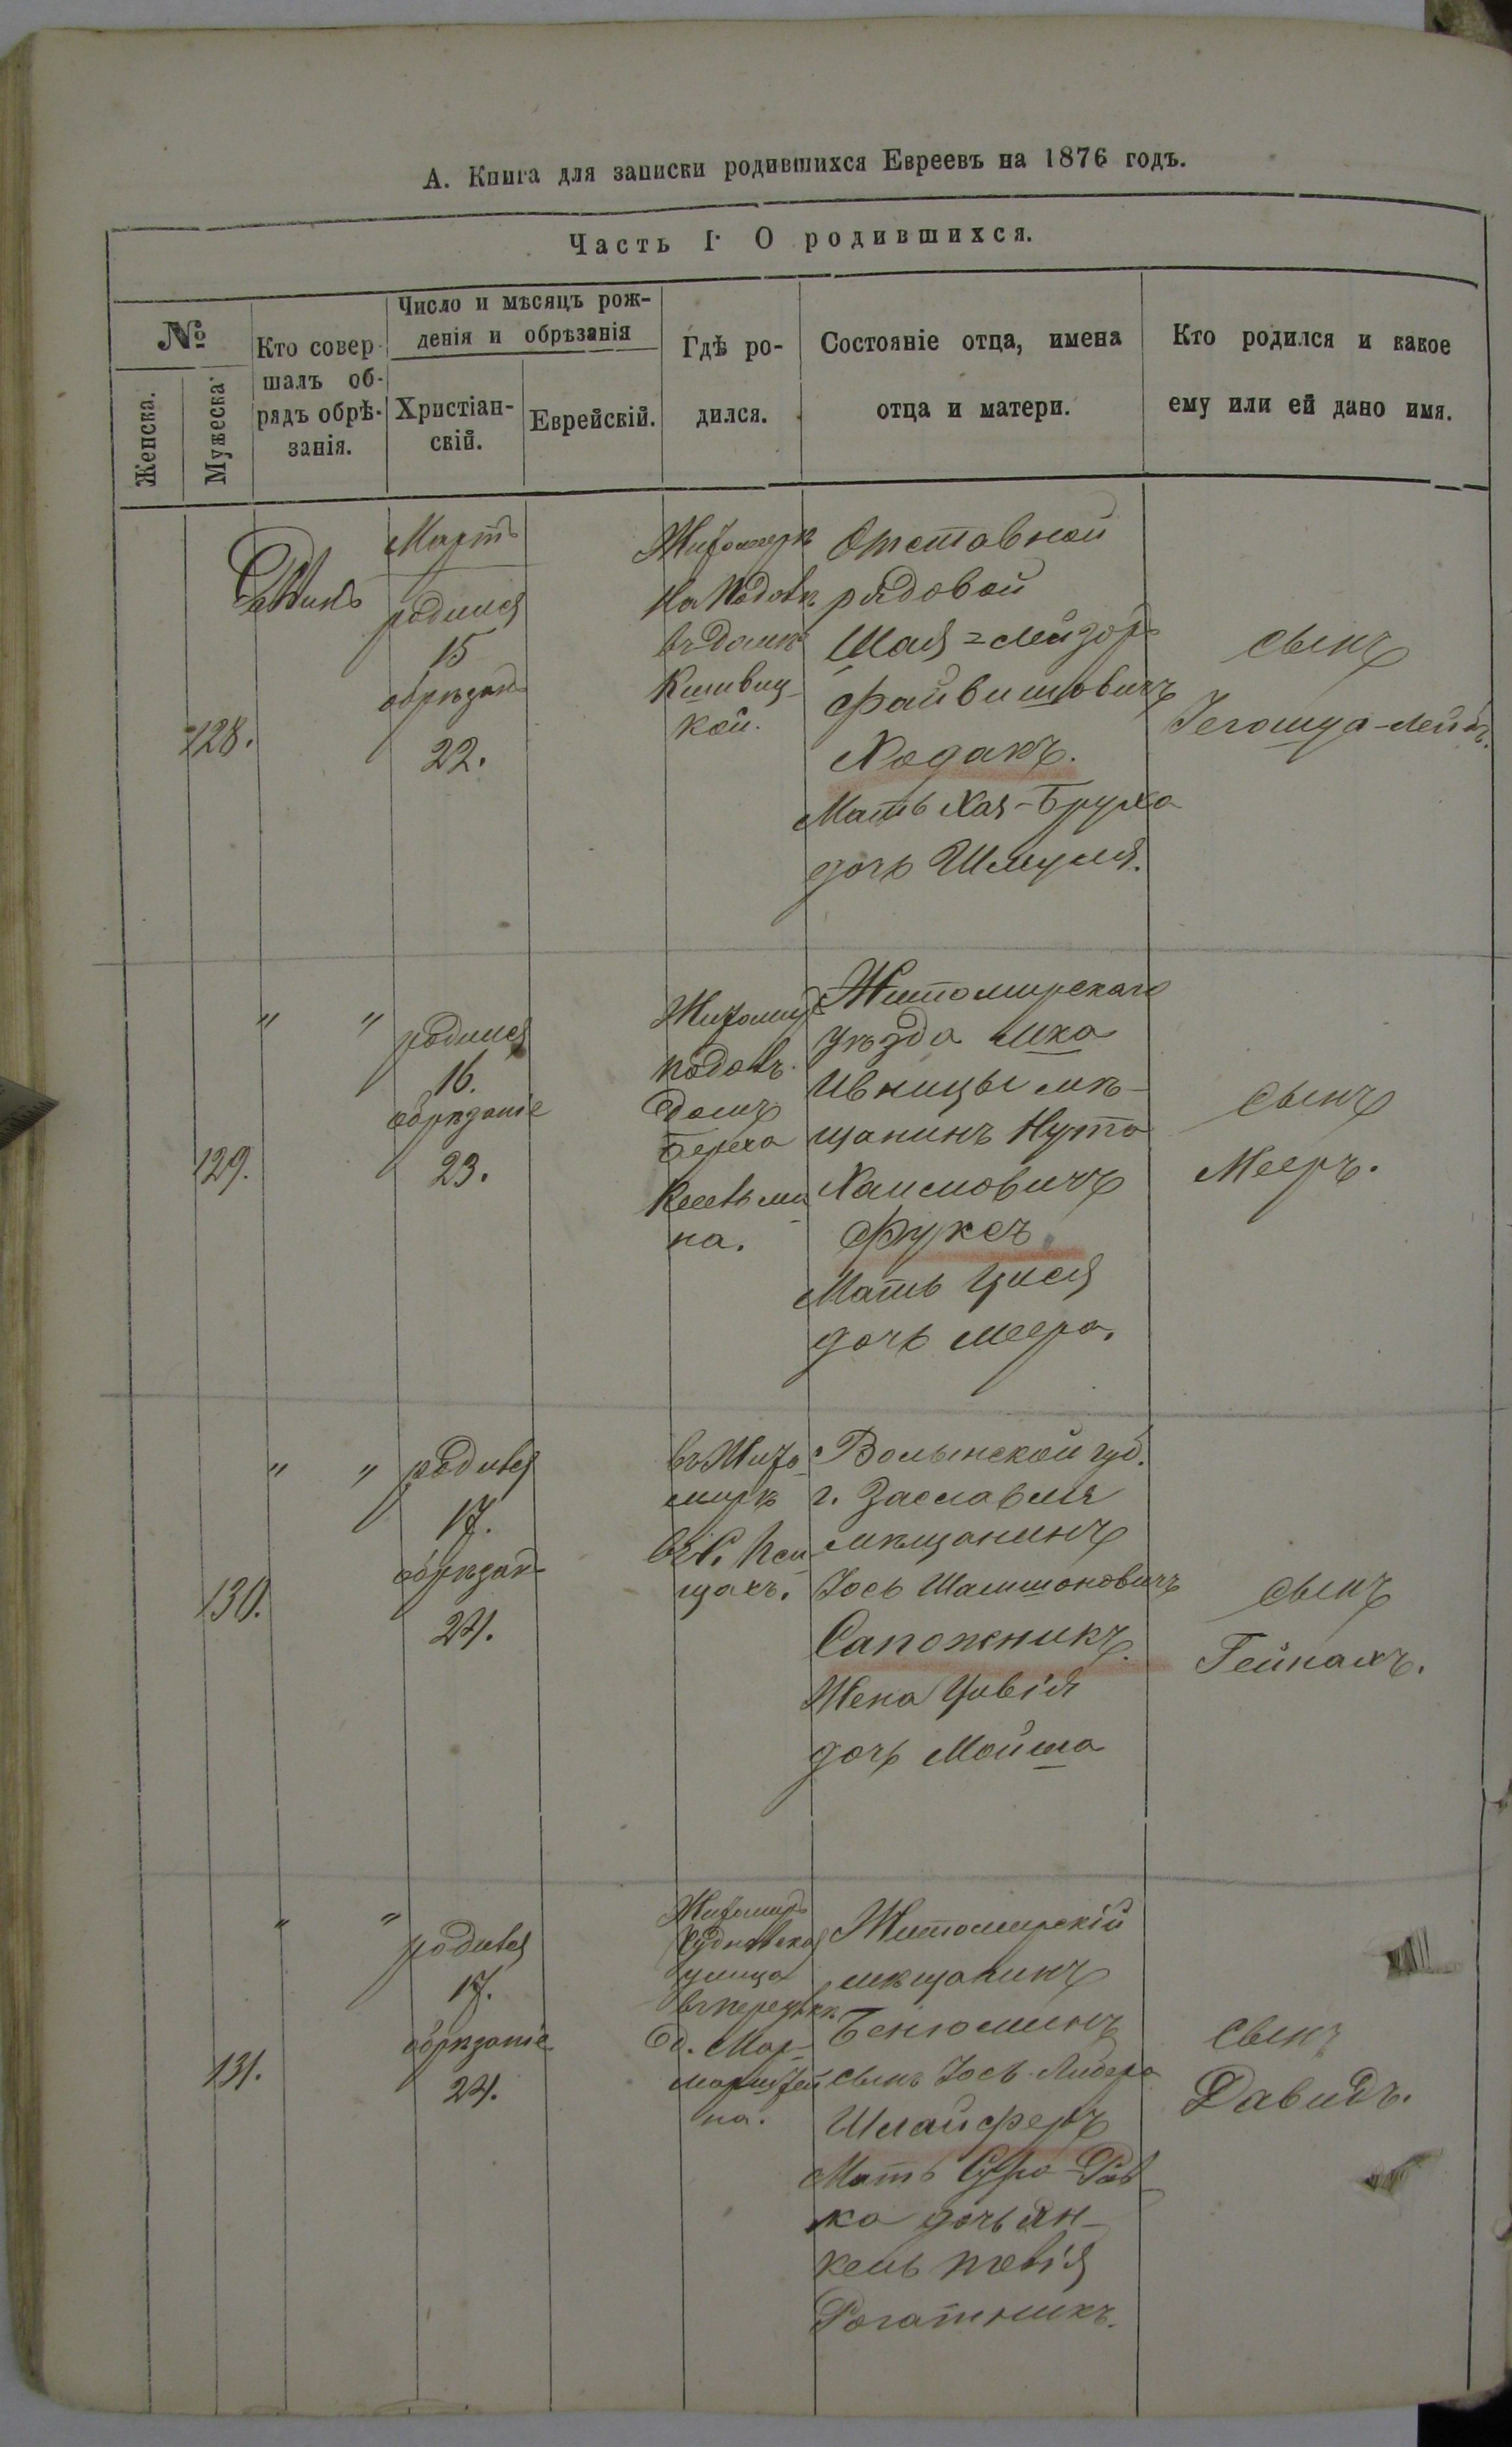 А. Книга для записки родившихся Евреевъ на 1876 годъ.
Часть I. О родившихся.
№
Женска.
Мужеска
Кто совер-
шалъ об-
рядъ обрѣ-
занія.
Число и мѣсяцъ рож-
денія и обрѣзанія
Христіан-
скій.
Еврейскій.
Гдѣ ро-
дился.
Состояніе отца, имена
отца и матери.
Кто родился и какое
ему или ей дано имя.
128.
Мартъ
родился
15
обрѣзан
22.
въ домѣ
кой.
Отставной
рядовой
Шая=Лейзоръ
Файвишовичъ
Ходакъ.
Мать Хая-Бруха
дочь Шмуля.
сынъ
Іегошуа-Лейбъ.
129.
" "
родился
16.
обрѣзаніе
23.
Житомиръ
домъ
Берка
на.
Житомирскаго
уѣзда мка
Ивницы мѣ-
щанинъ Нута
Хаимовичъ
Фуксъ
Мать Цися
дочь Меера.
сынъ
Мееръ.
130.
" "
родился
17.
обрѣзан
24.
въ Жито-
мирѣ
Волынской губ.
г. Заславля
мѣщанинъ
Іось Шамшоновичъ
Сапожникъ.
Жена Цивія
дочь Мойша
сынъ
Гейнахъ.
131.
" "
родился
17.
обрѣзаніе
24.
Житомиръ
Чудновская
улица
на.
Житомирскій
мѣщанинъ
Бенюминъ
сынъ Іось Лидера
Шлайферъ
Мать Сура-Рив
ка дочь Ян-
кель Товія
Рогатникъ.
сынъ
Давидъ.